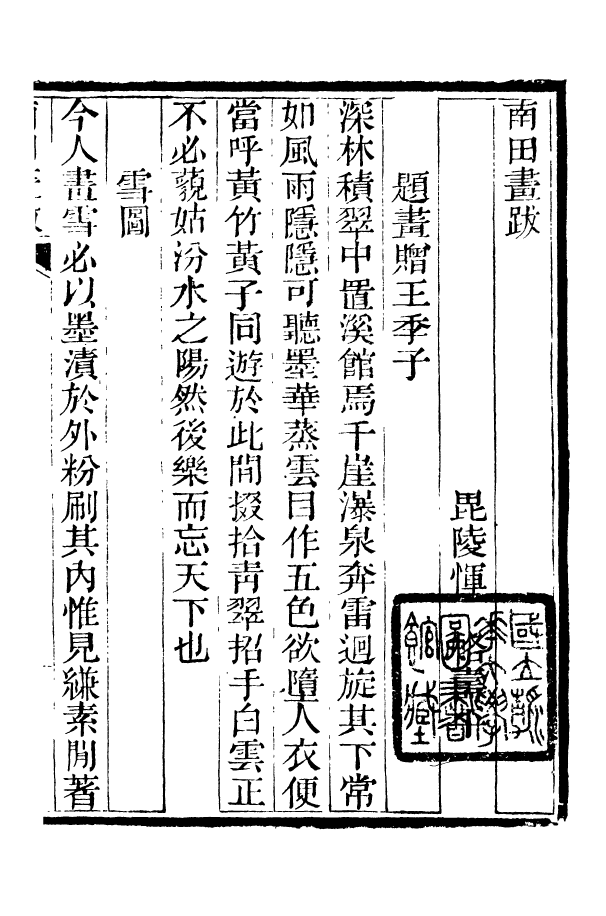 南田畫跋
毘陵惲
題畫贈王季子
深林積翠中置溪館焉千崖瀑泉奔雷迴旋其下常
如風雨隱隱可聽墨華蒸雲目作五色欲墮人衣便
當呼黃竹黃子同遊於此間掇拾青翠招手白雲正
不必藐姑汾水之陽然後樂而忘天下也
雪圖
今人畫雪必以墨漬於外粉刷其內惟見縑素間著